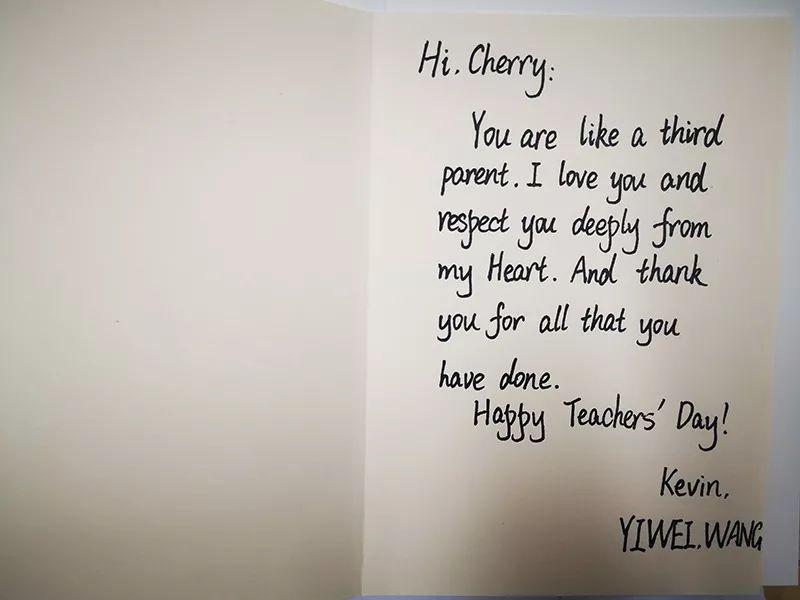 Hi. Cherry:
You are like a third
parent. I love you and
respect you deeply from
my Heart. And thank
you for all that you
have done.
Happy Teachers' Day!
Kevin,
YIWEI.WANG